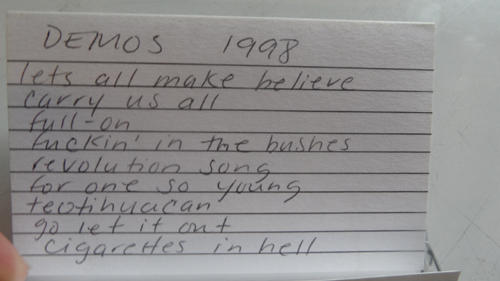 DEMOS 1998
lets all make believe
carry us all
full-on
fuckin' in the bushes
revolution song
for one so young
teotihuacan
go let it out
cigarettes in hell